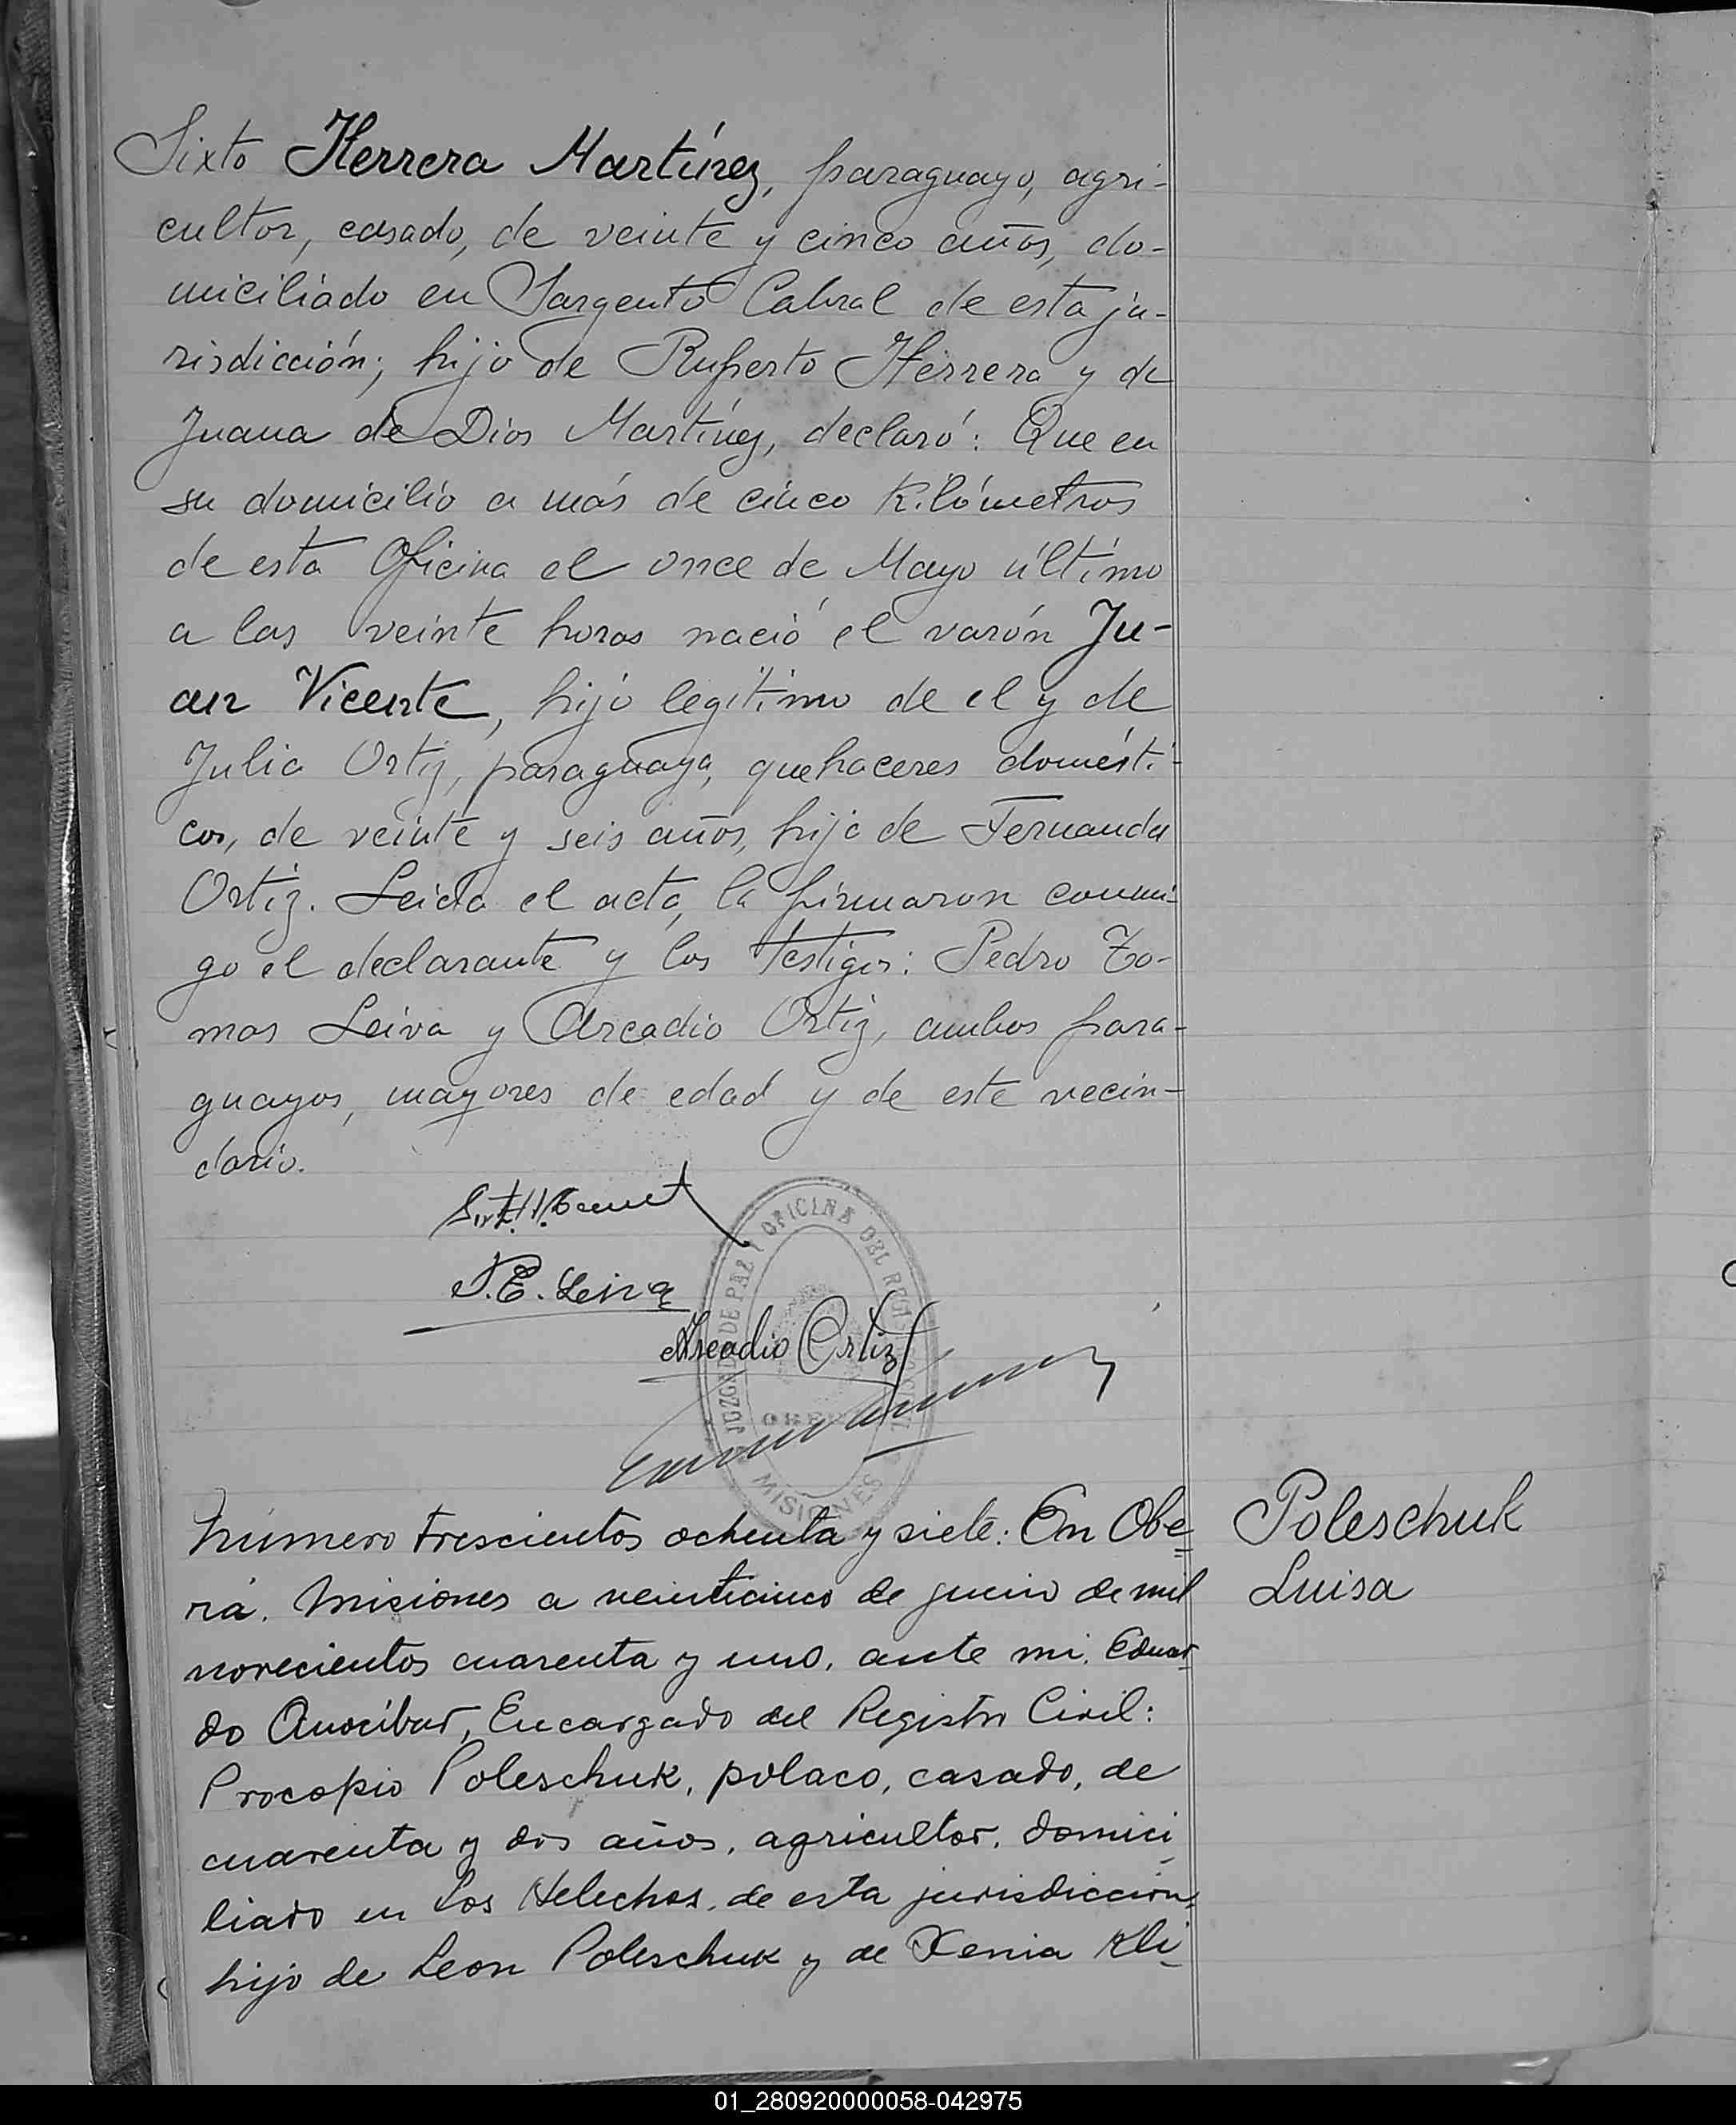 Sixto Herrera Martínez, paraguayo, agri-
cultor, casado, de veinte y cinco años, do-
miciliado en Sargento Cabral de esta ju-
risdicción; hijo de Ruperto Herrera y de
Juana de Dios Martínez, declaró: Que en
su domicilio a más de cinco Kilómetros
de esta Oficina el once de Mayo último
a las veinte horas nació el varón Ju-
an Vicente, hijo legítimo de el y de
Julia Ortiz, paraguaya, quehaceres domésti-
cos, de veinte y seis años, hija de Fernanda
Ortiz. Leida el acta, la firmaron conmi-
go el declarante y los testigos: Pedro To-
mas Leiva y Arcadio Ortiz, ambos para-
guayos, mayores de edad y de este vecin-
dario.
P.E. Leiva
Arcadio Ortiz
JUZGADO DE PAZ Y OFICINA DEL
MISIONES
Número trescientos ochenta y siete: En Obe
Poleschuk
Luisa
rá. Misiones a veinticinco de junio de mil
novecientos cuarenta y uno, ante mi, Eduar
do Anocíbar, Encargado del Registro Civil:
Procopio Poleschuk, polaco, casado, de
cuarenta y dos años, agricultor, domici
liado en Los Helechos, de esta jurisdiccion,
hijo de Leon Poleschuk y de Xenia Kli
01_280920000058-042975